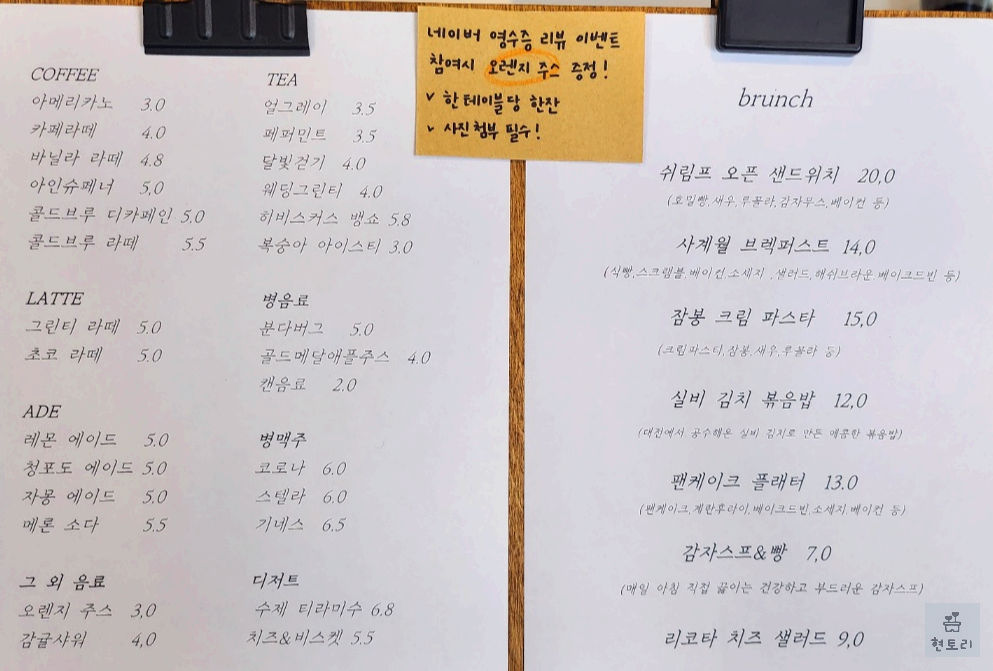 COFFEE
아메리카노 3.0
카페라떼 4.0
바닐라 라떼 4.8
아인슈페너 5,0
콜드브루 디카페인 5.0
콜드브루 라떼 5.5
LATTE
그린티 라떼 5.0
초코 라떼 5.0
ADE
레몬 에이드 5.0
청포도 에이드 5.0
자몽 에이드 5.0
메론 소다 5.5
그 외 음료
오렌지 주스 3,0
감귤샤워 4,0
TEA
얼그레이 3.5
페퍼민트 3.5
달빛걷기 4.0
웨딩그린티 4.0
히비스커스 뱅쇼 5.8
복숭아 아이스티 3.0
병음료
분다버그 5.0
골드메달애플주스 4.0
캔음료 2.0
병맥주
코로나 6.0
스텔라 6.0
기네스 6.5
디저트
수제 티라미수 6.8
치즈&비스켓 5.5
네이버 영수증 리뷰 이벤트
참여시 오렌지 주스 증정!
✓ 한 테이블당 한잔
✓ 사진 첨부 필수!
brunch
쉬림프 오픈 샌드위치 20,0
(호밀빵,새우,루꼴라,감자무스,베이컨 등)
사계월 브렉퍼스트 14,0
(식빵,스크램블,베이컨,소세지 ,샐러드,해쉬브라운,베이크드빈 등)
잠봉 크림 파스타 15,0
(크림파스타,잠봉,새우,루꼴라 등)
실비 김치 볶음밥 12,0
(대전에서 공수해온 실비 김치로 만든 매콤한 볶음밥)
팬케이크 플래터 13.0
(팬케이크,계란후라이,베이크드빈,소세지,베이컨 등)
감자스프&빵 7,0
(매일 아침 직접 끓이는 건강하고 부드러운 감자스프)
리코타 치즈 샐러드 9,0
현토리